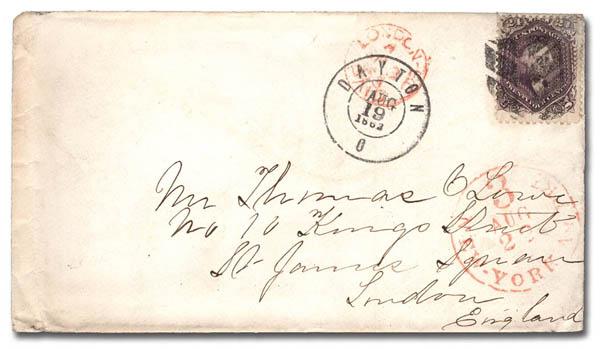 LONDON
DAYTON
AUG
19
1862
O
Mr Thomas C Lowe
No 10 Kings Street
St James Square
London
England
3
AUG
2
YORK